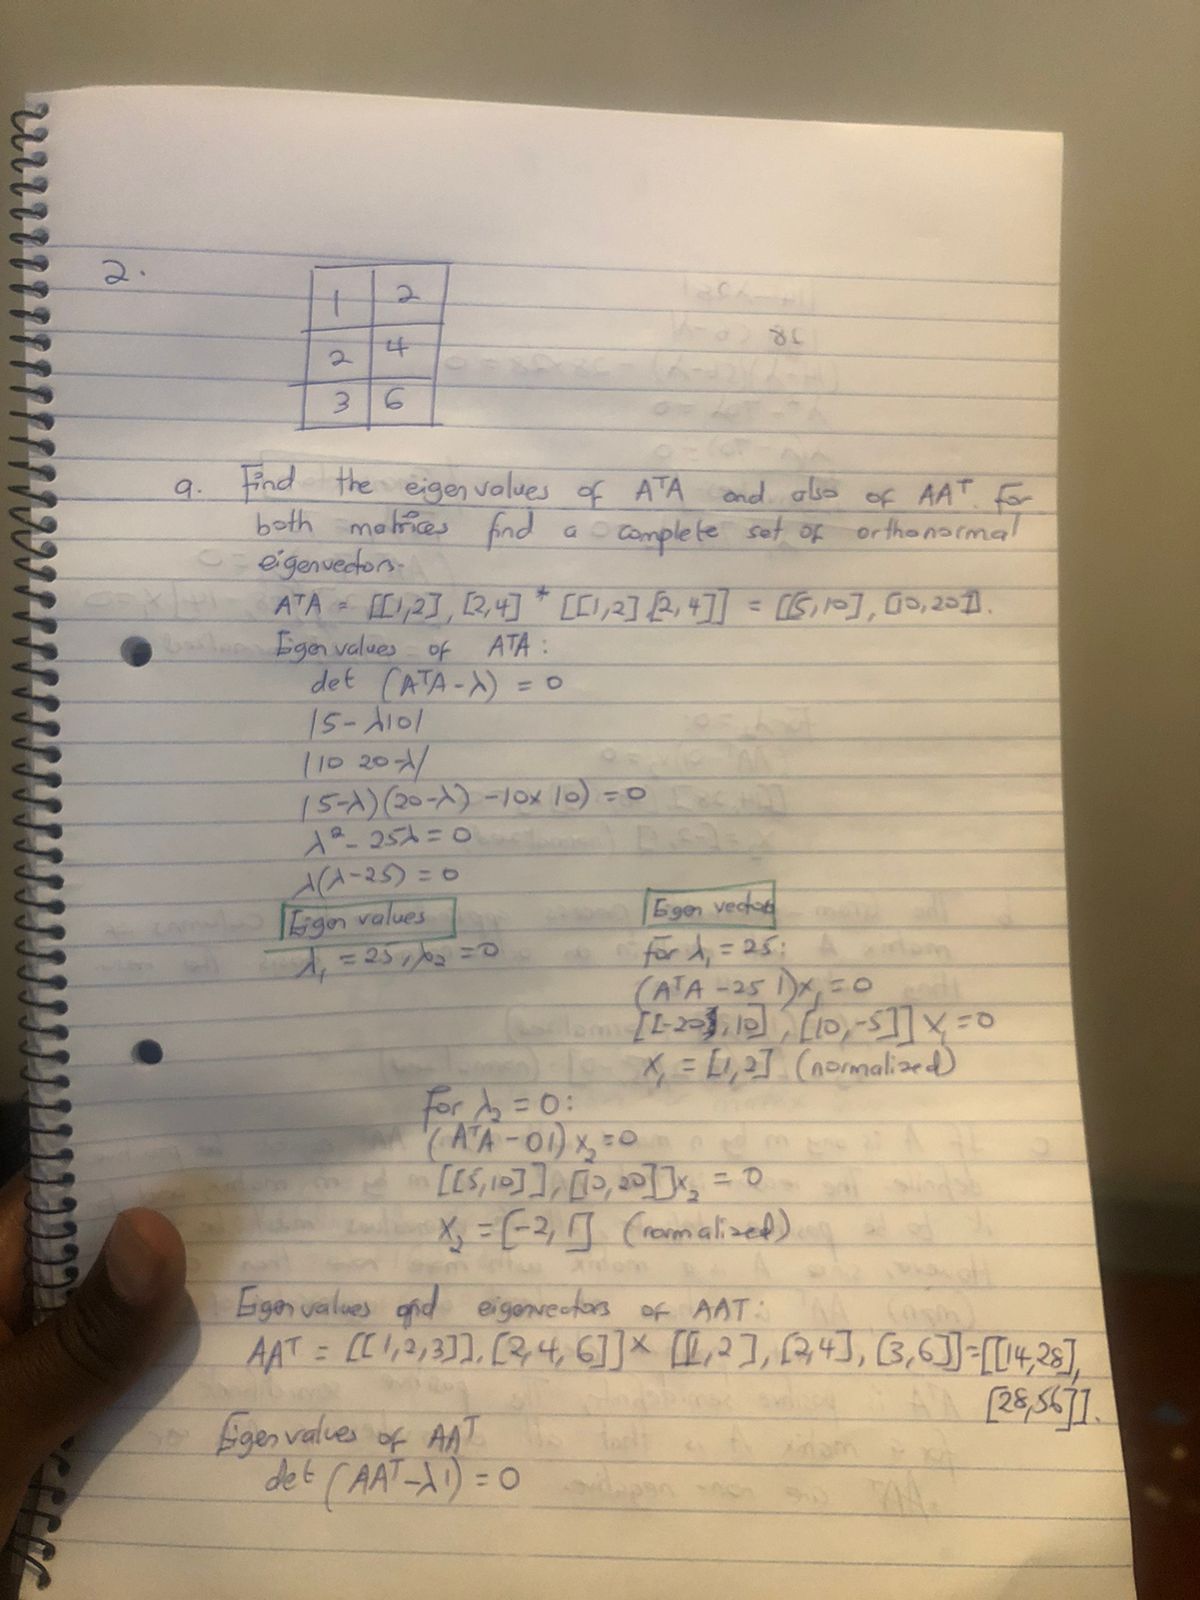 2.
1 2
2 4
3 6
a. Find the eigenvalues of AᵀA and also of AAᵀ. For
both matrices find a complete set of orthonormal
eigenvectors.
AᵀA = [[1,2], [2,4] * [[1,2] [2,4]] = [[5,10], [10,20]].
Eigenvalues of AᵀA:
det (AᵀA-λ) = 0
|5-λ10|
|10 20-λ|
(5-λ)(20-λ) -10x10) = 0
λ² - 25λ = 0
λ(λ-25) = 0
Eigen values
λ₁ = 25, λ₂ = 0
Eigen vectors
for λ₁ = 25:
(AᵀA - 25 I)x₁ = 0
[[-20, 10], [10,-5]] x₁ = 0
x₁ = [1,2] (normalized)
for λ₂ = 0:
(AᵀA - 0I) x₂ = 0
[[5,10]], [10,20]]x₂ = 0
x₂ = [-2, 1] (normalized)
Eigenvalues and eigenvectors of AAT:
AAᵀ = [[1,2,3]], [2,4,6]] x [[1,2], [2,4], [3,6]] = [[14,28],
[28,56]].
Eigenvalues of AAᵀ
det (AAᵀ-λI) = 0